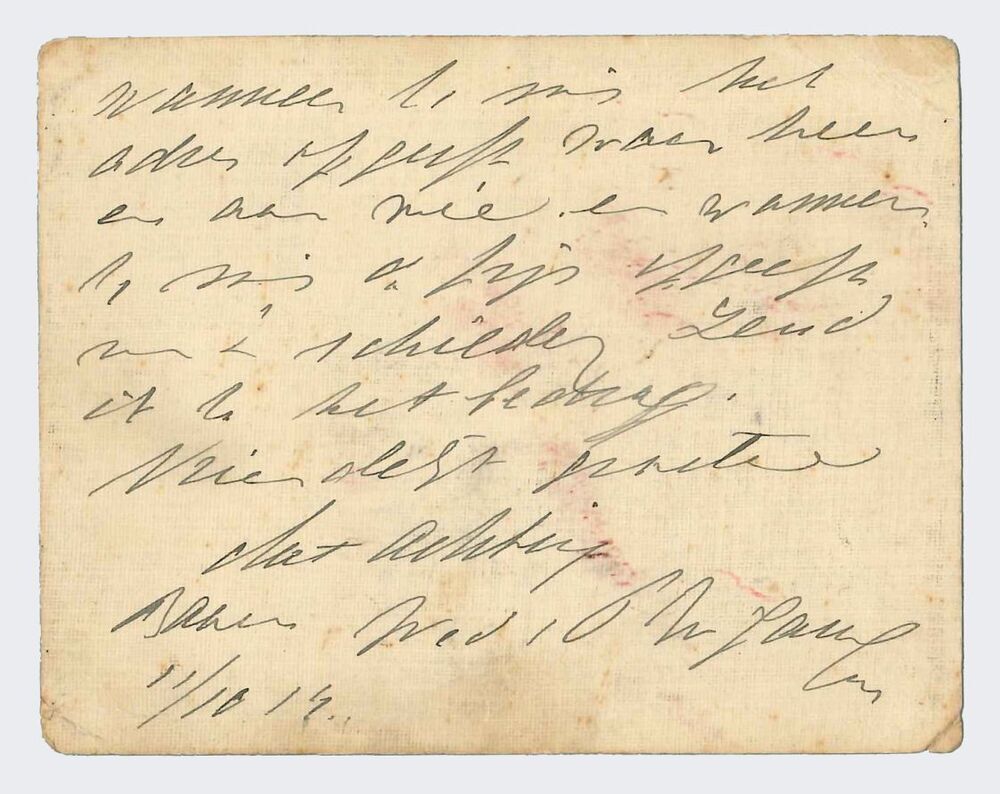 wanneer U mij het
adres opgeeft waar heen
en aan wie en wanneer
U mij de prijs opgeeft
schilderij zend
ik U het bedrag.
Vriendelijk groetend
Met Achting
Baarn Wed.
11/10 17.